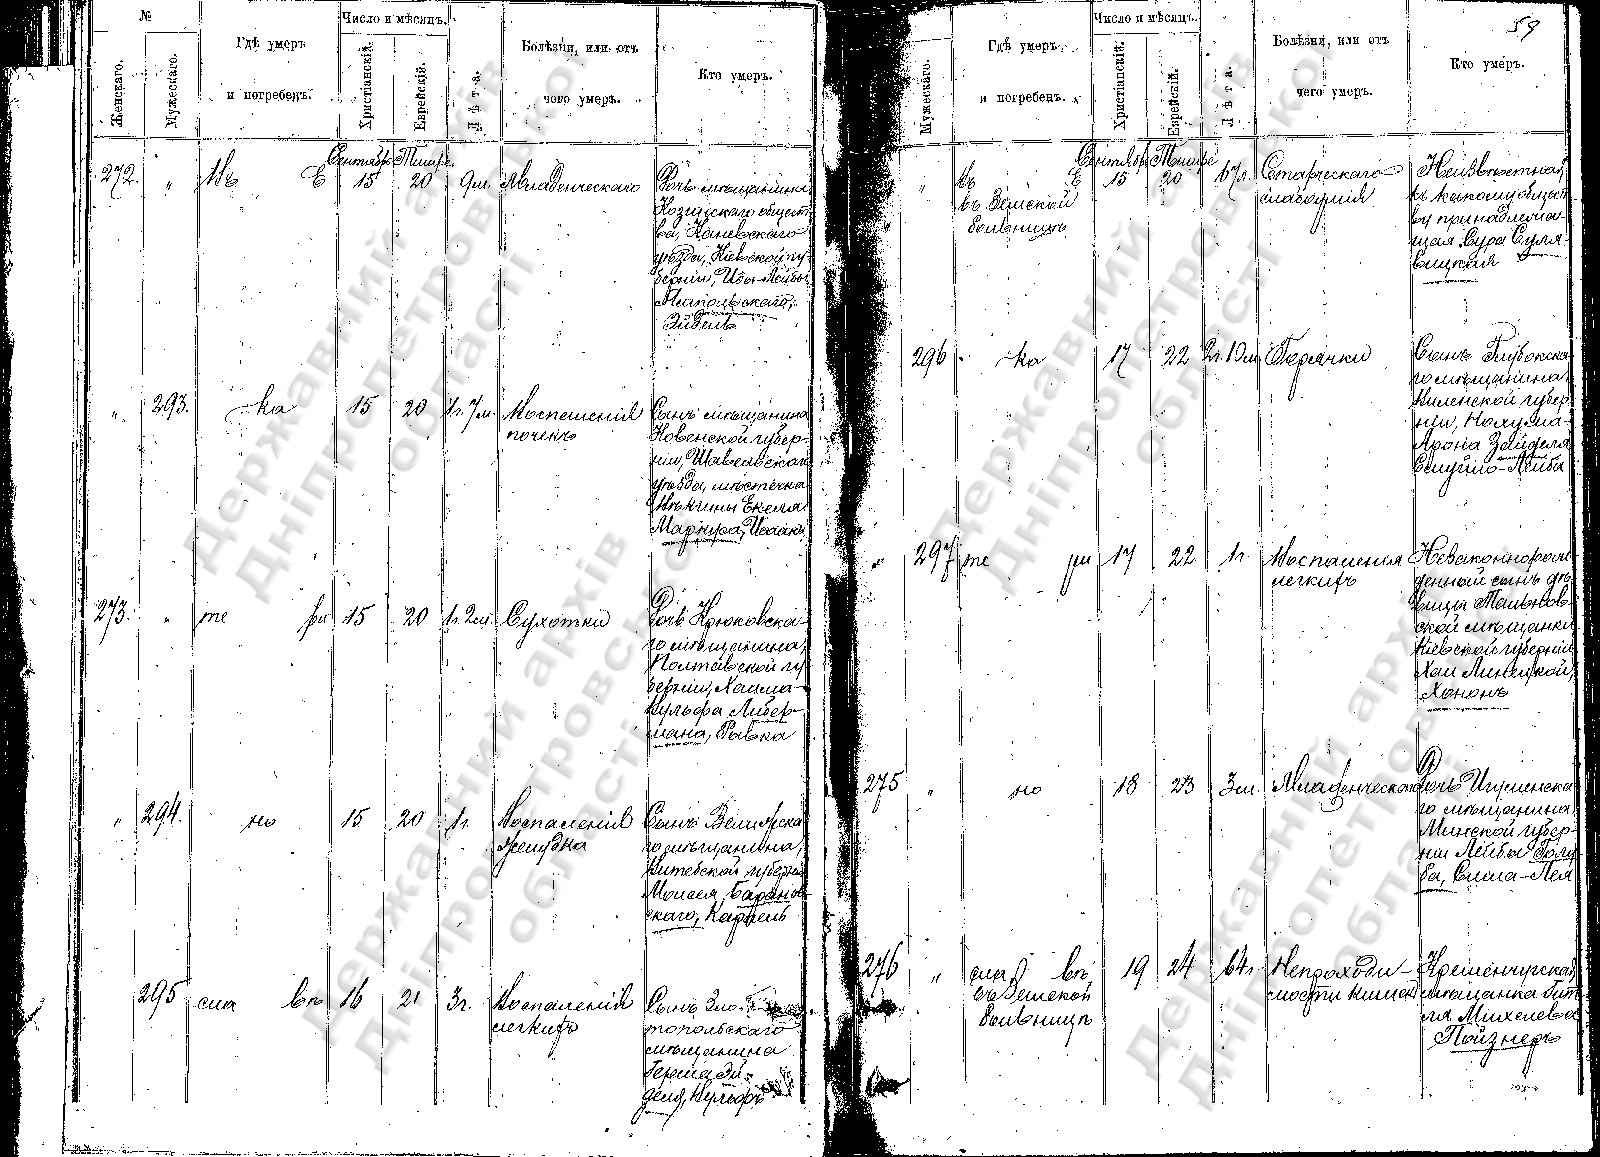 №
Число и мѣсяцъ.
Женскаго.
Мужескаго.
Гдѣ умеръ
и погребенъ.
Христіанскій.
Еврейскій.
Лѣта.
Болѣзни, или отъ
чего умеръ.
Кто умеръ.
272. „ Въ Е
Сентябр. Тишре
15 20 9 м. Младенческаго
Дочь мѣщанина
Козинскаго общест-
ва, Каневскаго
уѣзда, Кіевской гу-
берніи, Ицы-Лейбы
Эйдель
„ 293. ка 15 20 1 г. 7 м. Воспаленія
почекъ
Сынъ мѣщанина
Ковенской губер-
ніи, Шавельскаго
уѣзда, мѣстечка
Екеля
Маркуса, Исаакъ
273. „ те ри 15 20 1 г. 2 м. Сухотки
Дочь Крюковска-
го мѣщанина,
Полтавской гу-
берніи, Хаима-
Вульфа Либер-
мана, Ривка
„ 294. но 15 20 1 г. Воспаленія
желудка
Сынъ Велижска-
го мѣщанина,
Витебской губерніи
Моисея Баранов-
скаго,
295 сла въ 16 21 3 г. Воспаленія
легкихъ
Сынъ Зло-
топольскаго
мѣщанина
Герша Эй-
деля,
59
Число и мѣсяцъ.
Мужескаго.
Гдѣ умеръ
и погребенъ.
Христіанскій.
Еврейскій.
Лѣта.
Болѣзни, или отъ
чего умеръ.
Кто умеръ.
„ въ Е
въ Земской
больницѣ
Сентябр. Тишре
15 20 67 л. Старческаго
слабосилія
Неизвѣстной
къ какому общест-
ву принадлежа-
щая Сура Суля-
вицкая
296 ка 17 22 2 г. 10 м. Горячки
Сынъ Глубокска-
го мѣщанина,
Виленской губер-
ніи, Нохума-
Арона Зайделя
Шмуйло-Лейба
„ 297 те ри 17 22 1 г. Воспаленія
легкихъ
Незаконнорож-
денный сынъ дѣ-
вицы Тальнов-
ской мѣщанки
Кіевской губерніи
Хаи Линецкой,
Хононъ
275 „ но 18 23 3 м. Младенческаго
Дочь Игуменска-
го мѣщанина,
Минской губер-
ніи Лейбы Голу-
ба, Сима-Лея
276 „ сла въ
въ Земской
больницѣ
19 24 64 г. Непроходи-
мости кишекъ
Кременчугская
мѣщанка Гит-
ля Михелева
Пойзнеръ
Державний архів
Дніпропетровської
області